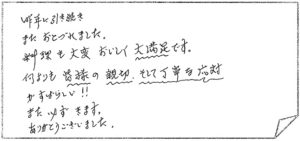 昨年に引き続き
またおとづれました。
料理も大変おいしく大満足です。
何よりも皆様の親切、そして丁寧な応対
がすばらしい!!
また必ずきます。
ありがとうございました。